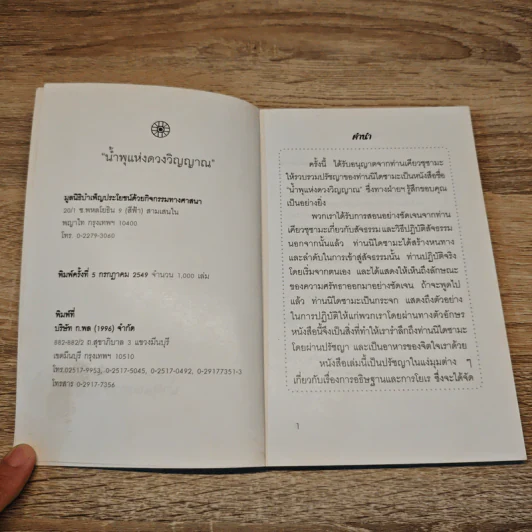 "น้ำพุแห่งดวงวิญญาณ"
มูลนิธิบำเพ็ญประโยชน์ด้วยกิจกรรมทางศาสนา
20/1 ซ.พหลโยธิน 9 (สีฟ้า) สามเสนใน
พญาไท กรุงเทพฯ 10400
โทร. 0-2279-3060
พิมพ์ครั้งที่ 5 กรกฎาคม 2549 จำนวน 1,000 เล่ม
พิมพ์ที่
บริษัท ก.พล (1996) จำกัด
882-882/2 ถ.สุขาภิบาล 5 แขวงมีนบุรี
เขตมีนบุรี กรุงเทพฯ 10510
โทร.02517-9953, 0-2517-5045, 0-2517-0492, 0-29177351-3
โทรสาร 0-2917-7356
คำนำ
ครั้งนี้ ได้รับอนุญาตจากท่านเคียวชุซามะ
ให้รวบรวมปรัชญาของท่านนิไดซามะเป็นหนังสือชื่อ
"น้ำพุแห่งดวงวิญญาณ" ซึ่งทางฝ่ายฯ รู้สึกขอบคุณ
เป็นอย่างยิ่ง
พวกเราได้รับการสอนอย่างชัดเจนจากท่าน
เคียวชุซามะเกี่ยวกับสัจธรรม และวิธีปฏิบัติสัจธรรม
นอกจากนั้นแล้ว ท่านนิไดซามะได้สร้างหนทาง
และลำดับในการเข้าสู่สัจธรรมนั้น ท่านปฏิบัติจริง
โดยเริ่มจากตนเอง และได้แสดงให้เห็นถึงลักษณะ
ของความศรัทธาออกมาอย่างชัดเจน ถ้าจะพูดไป
แล้ว ท่านนิไดซามะเป็นกระจก แสดงถึงตัวอย่าง
ในการปฏิบัติให้แก่พวกเราโดยผ่านทางตัวอักษร
หนังสือนี้จึงเป็นสิ่งที่ทำให้เรารำลึกถึงท่านนิไดซามะ
โดยผ่านปรัชญา และเป็นอาหารของจิตใจเราด้วย
หนังสือเล่มนี้เป็นปรัชญาในแง่มุมต่าง ๆ
เกี่ยวกับเรื่องการอธิษฐานและการโยเร ซึ่งจะได้จัด